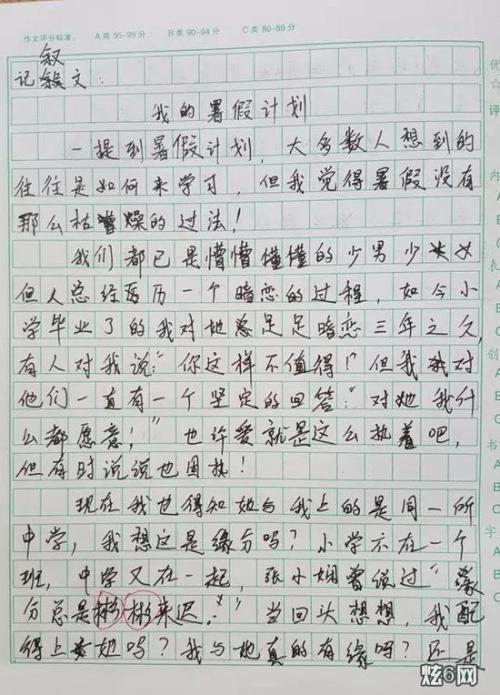 作文评分标准： A类 95-99分 B类 90-94分 C类 80-89分
叙
记叙文：
我的暑假计划
一提到暑假计划，大多数人想到的
往往是如何来学习，但我觉得暑假没有
那么枯燥的过法！
我们都已是懵懵懂懂的少男少女
但人总经历一个暗恋的过程，如今小
学毕业了的我对她足足暗恋三年之久，
有人对我说：“你这样不值得！”但我对
他们一直有一个坚定的回答：“对她我什
么都愿意！”也许爱就是这么执着吧，
但有时说说也固执！
现在我也得知她与我上的是同一所
中学，我想这是缘分吗？小学不在一个
班，中学又在一起，张小娴曾说过“缘
分总是彬彬来迟”，当回头想想，我配
得上她吗？我与她真的有缘吗？还是
优
评
内
表
书
字
A
B
C
炫6网